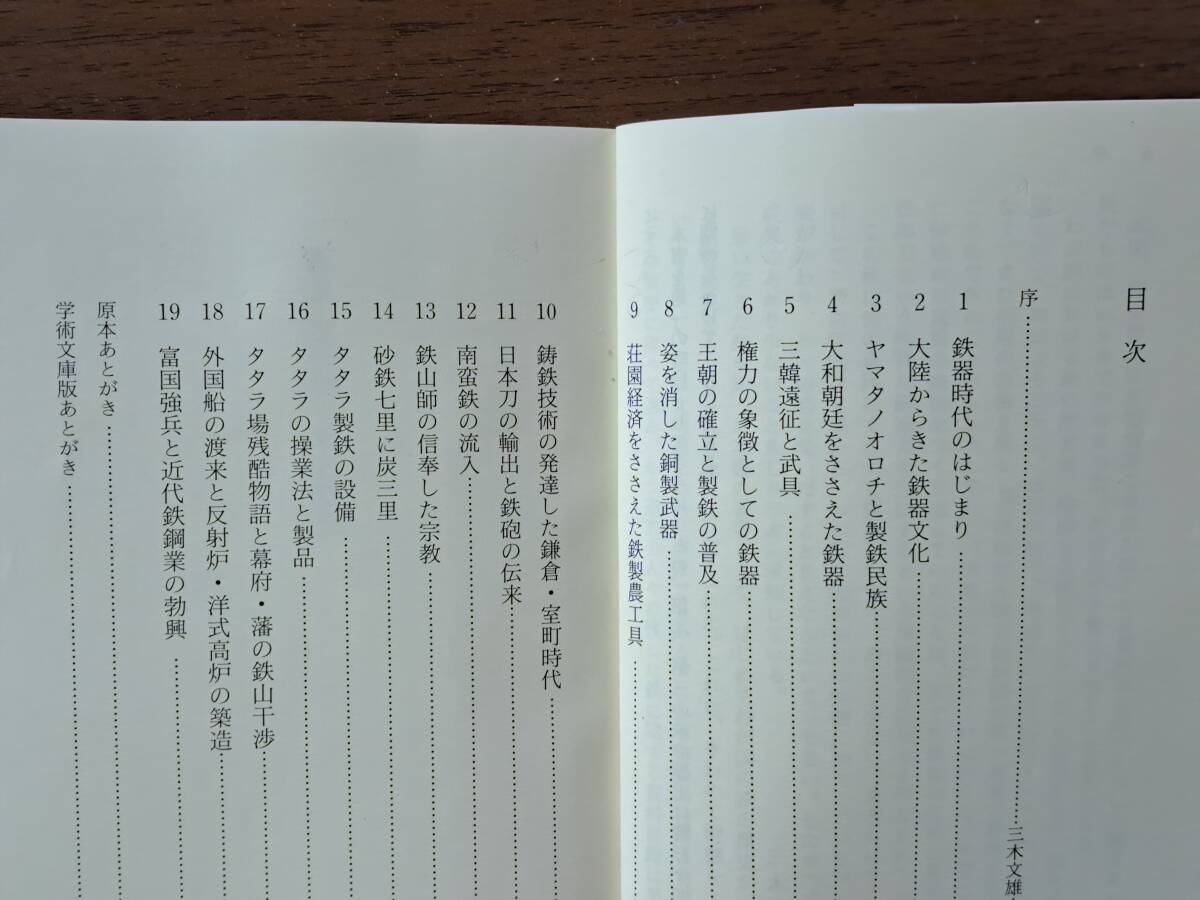 目次
序……………………三木文雄
1 鉄器時代のはじまり
2 大陸からきた鉄器文化
3 ヤマタノオロチと製鉄民族
4 大和朝廷をささえた鉄器
5 三韓遠征と武具
6 権力の象徴としての鉄器
7 王朝の確立と製鉄の普及
8 姿を消した銅製武器
9 荘園経済をささえた鉄製農工具
10 鋳鉄技術の発達した鎌倉・室町時代
11 日本刀の輸出と鉄砲の伝来
12 南蛮鉄の流入
13 鉄山師の信奉した宗教
14 砂鉄七里に炭三里
15 タタラ製鉄の設備
16 タタラの操業法と製品
17 タタラ場残酷物語と幕府・藩の鉄山干渉
18 外国船の渡来と反射炉・洋式高炉の築造
19 富国強兵と近代鉄鋼業の勃興
原本あとがき
学術文庫版あとがき